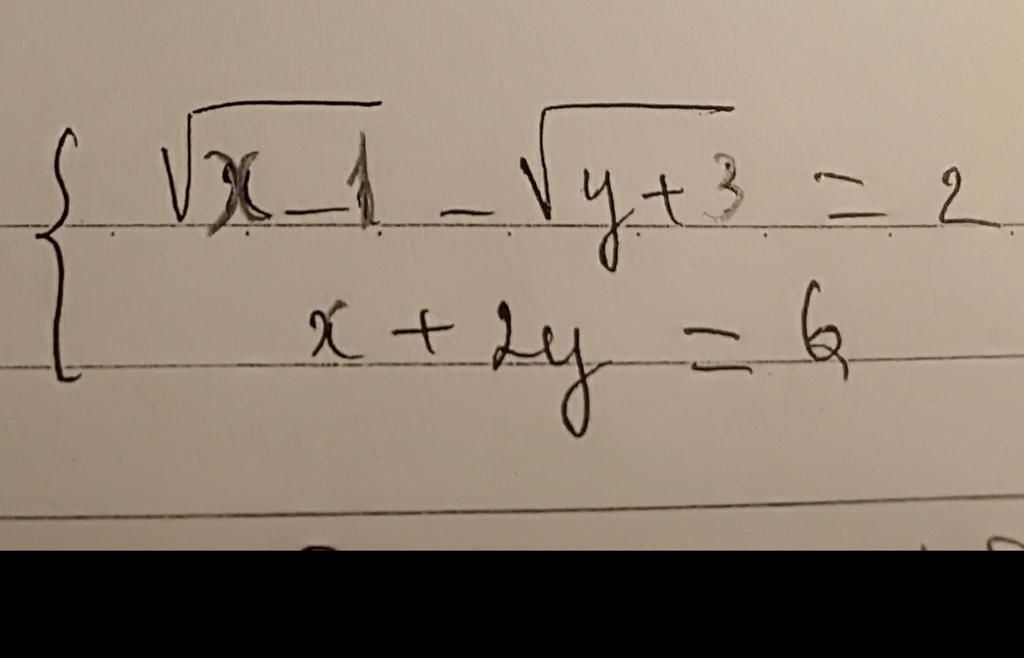 { √(x-1) - √(y+3) = 2
x + 2y = 6